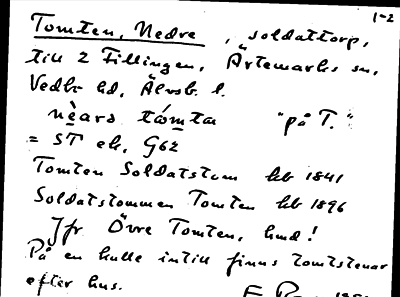 1-2
Tomten, Nedre, soldattorp,
till 2 Fillingen, Ärtemarks sn,
Vedbo hd, Älvsb. l.
nèara támta "på T."
= ST ek. G62
Tomten Soldatstom hb 1841
Soldatstommen Tomten hb 1896
Jfr Övre Tomten, hmd!
På en kulle intill finns tomtstenar
efter hus.